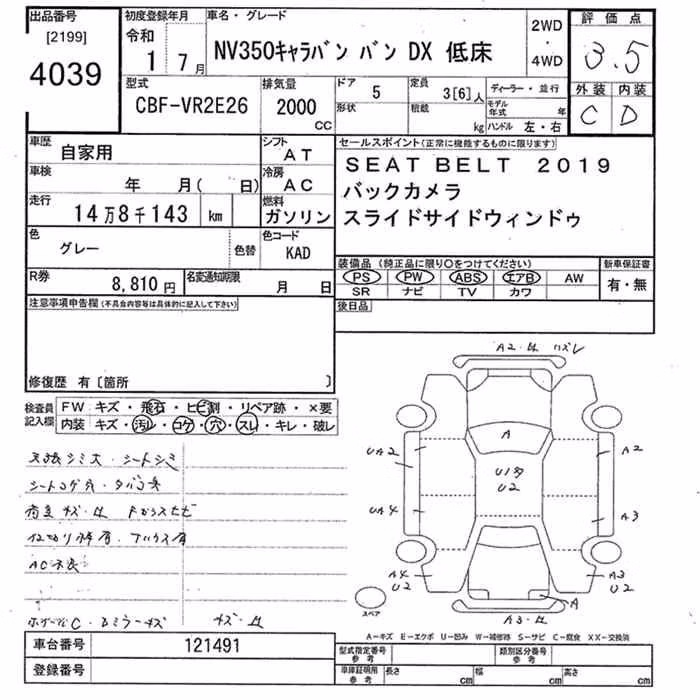 出品番号
[2199]
4039
初度登録年月
令和
1 7月
車名・グレード
NV350キャラバン バン DX 低床
2WD
・
4WD
評価点
3.5
外装 内装
C D
型式
CBF-VR2E26
排気量
2000
CC
ドア
5
形状
定員
3[6]人
積載
kg
ディーラー・並行
モデル年式 年
ハンドル 左・右
車歴
自家用
シフト
AT
車検
年 月( 日)
冷房
AC
走行
14万8千143 km
燃料
ガソリン
色
グレー
色替
色コード
KAD
R券
8,810円
名変通知期限
月 日
セールスポイント(正常に機能するものに限ります)
SEAT BELT 2019
バックカメラ
スライドサイドウィンドゥ
装備品(純正品に限り○をつけてください)
PS PW ABS エアB AW
SR ナビ TV カワ
新車保証書
有・無
後日品
注意事項申告欄(不具合内容等は具体的に記入して下さい)
修復歴 有〔箇所 〕
検査員記入欄
FW キズ・飛石・ヒビ割・リペア跡・×要
内装 キズ・汚レ・コゲ・穴・スレ・キレ・破レ
天張シミ大・シートシミ
シートコゲ穴・タバコ臭
荷室キズ・凹 Fガラスヒビ
AC不良
キズ・凹
A2・凹 ハズレ
A
UA2
A2
U1多
U2
UA4
A3
A4
U2
A3
U2
A
A3・凹
スペア
A－キズ E－エクボ U－凹み W－補修跡 S－サビ C－腐食 XX－交換済
車台番号
121491
登録番号
型式指定番号
参考
類別区分番号
参考
車庫証明用
参考
長さ cm
幅 cm
高さ cm